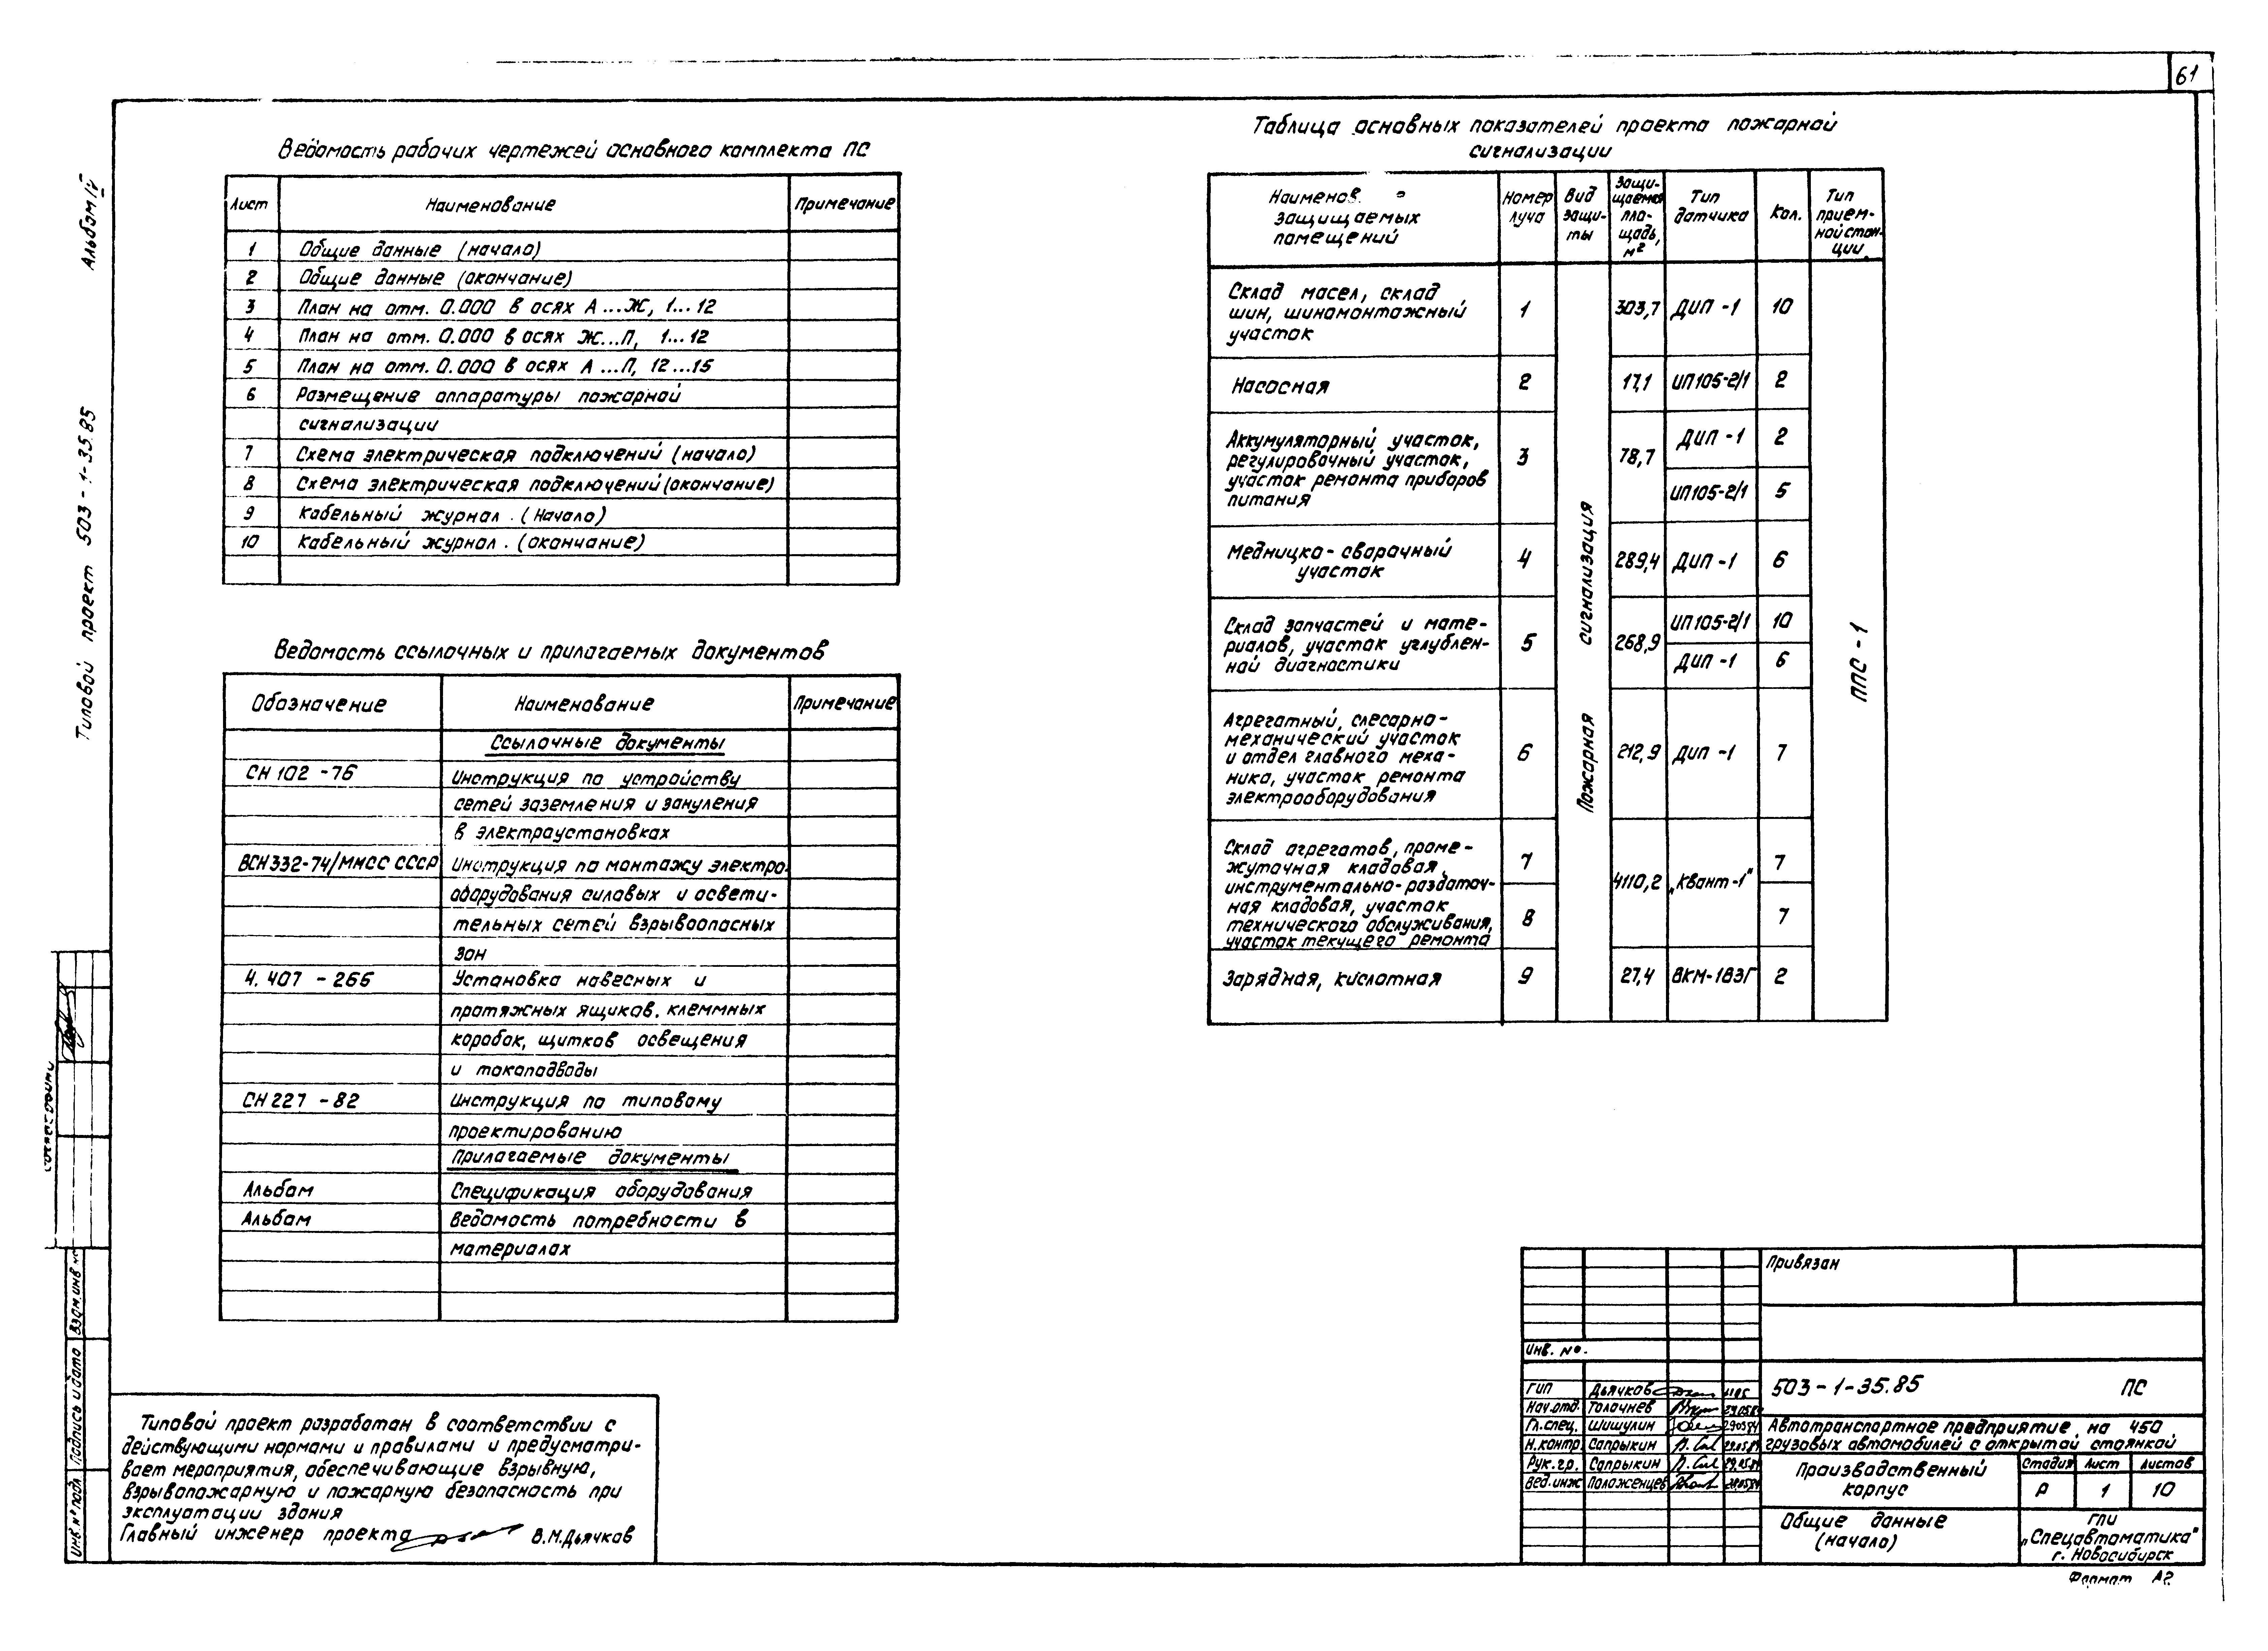 61
Альбом IV
Типовой проект 503-1-35.85
Ведомость рабочих чертежей основного комплекта ПС
Лист Наименование Примечание
1 Общие данные (начало)
2 Общие данные (окончание)
3 План на отм. 0.000 в осях А...Ж, 1...12
4 План на отм. 0.000 в осях Ж...П, 1...12
5 План на отм. 0.000 в осях А...П, 12...15
6 Размещение аппаратуры пожарной
сигнализации
7 Схема электрическая подключений (начало)
8 Схема электрическая подключений (окончание)
9 Кабельный журнал. (Начало)
10 Кабельный журнал. (окончание)
Ведомость ссылочных и прилагаемых документов
Обозначение Наименование Примечание
Ссылочные документы
СН 102-76 Инструкция по устройству
сетей заземления и зануления
в электроустановках
ВСН 332-74/ММСС СССР Инструкция по монтажу электро-
оборудования силовых и освети-
тельных сетей взрывоопасных
зон
4.407-266 Установка навесных и
протяжных ящиков, клеммных
коробок, щитков освещения
и токоподводы
СН 227-82 Инструкция по типовому
проектированию
Прилагаемые документы
Альбом Спецификация оборудования
Альбом Ведомость потребности в
материалах
Таблица основных показателей проекта пожарной
сигнализации
Наименов. е
защищаемых
помещений
Номер
луча
Вид
защи-
ты
Защи-
щаемая
пло-
щадь,
м²
Тип
датчика
Кол.
Тип
прием-
ной стан-
ции.
Склад масел, склад
шин, шиномонтажный
участок
1 303,7 ДИП-1 10
Насосная 2 17,1 ИП105-2/1 2
Аккумуляторный участок,
регулировочный участок,
участок ремонта приборов
питания
3 78,7 ДИП-1 2
ИП105-2/1 5
Медницко-сварочный
участок
4 289,4 ДИП-1 6
Склад запчастей и мате-
риалов, участок углублен-
ной диагностики
5 268,9 ИП105-2/1 10
ДИП-1 6
Агрегатный, слесарно-
механический участок
и отдел главного меха-
ника, участок ремонта
электрооборудования
6 212,9 ДИП-1 7
Склад агрегатов, проме-
жуточная кладовая,
инструментально-раздаточ-
ная кладовая, участок
технического обслуживания,
участок текущего ремонта
7 4110,2 „Квант-1" 7
8 7
Зарядная, кислотная 9 27,4 ВКМ-1ВЗГ 2
Пожарная сигнализация
ППС-1
Типовой проект разработан в соответствии с
действующими нормами и правилами и предусматри-
вает мероприятия, обеспечивающие взрывную,
взрывопожарную и пожарную безопасность при
эксплуатации здания
Главный инженер проекта В.М.Дьячков
Инв.№ подл. Подпись и дата Взам.инв №
Привязан
Инв. №.
ГИП Дьячков
Нач.отд. Толочнев
Гл.спец. Шишулин
Н.контр. Сапрыкин
Рук.гр. Сапрыкин
Вед.инж Положенцев
503-1-35.85 ПС
Автотранспортное предприятие на 450
грузовых автомобилей с открытой стоянкой
Производственный
корпус
Стадия Лист Листов
Р 1 10
Общие данные
(начало)
ГПИ
„Спецавтоматика"
г. Новосибирск
Формат А2